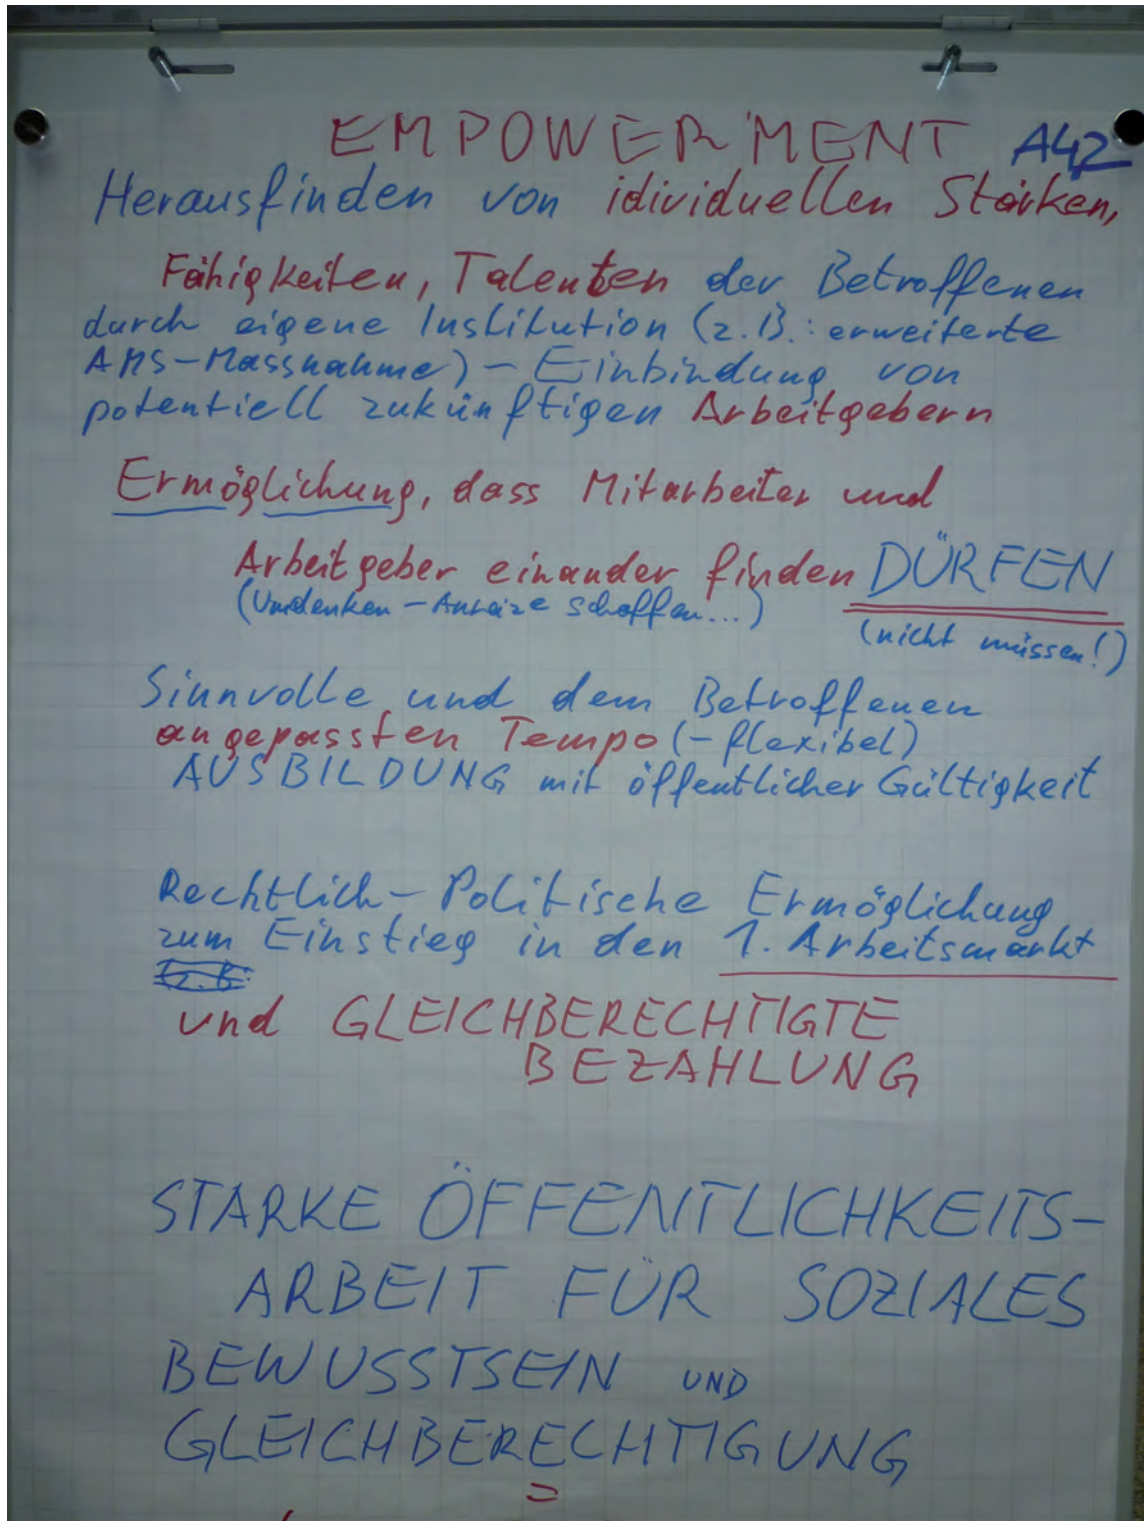 EMPOWERMENT A42
Herausfinden von idividuellen Stärken,
Fähigkeiten, Talenten der Betroffenen
durch eigene Institution (z.B.: erweiterte
AMS-Massnahme) - Einbindung von
potentiell zukünftigen Arbeitgebern
Ermöglichung, dass Mitarbeiter und
Arbeitgeber einander finden DÜRFEN
(Umdenken - Anreize schaffen...)
(nicht müssen!)
Sinnvolle und dem Betroffenen
angepassten Tempo (- flexibel)
AUSBILDUNG mit öffentlicher Gültigkeit
Rechtlich - Politische Ermöglichung
zum Einstieg in den 1. Arbeitsmarkt
und GLEICHBERECHTIGTE
BEZAHLUNG
STARKE ÖFFENTLICHKEITS-
ARBEIT FÜR SOZIALES
BEWUSSTSEIN UND
GLEICHBERECHTIGUNG
=